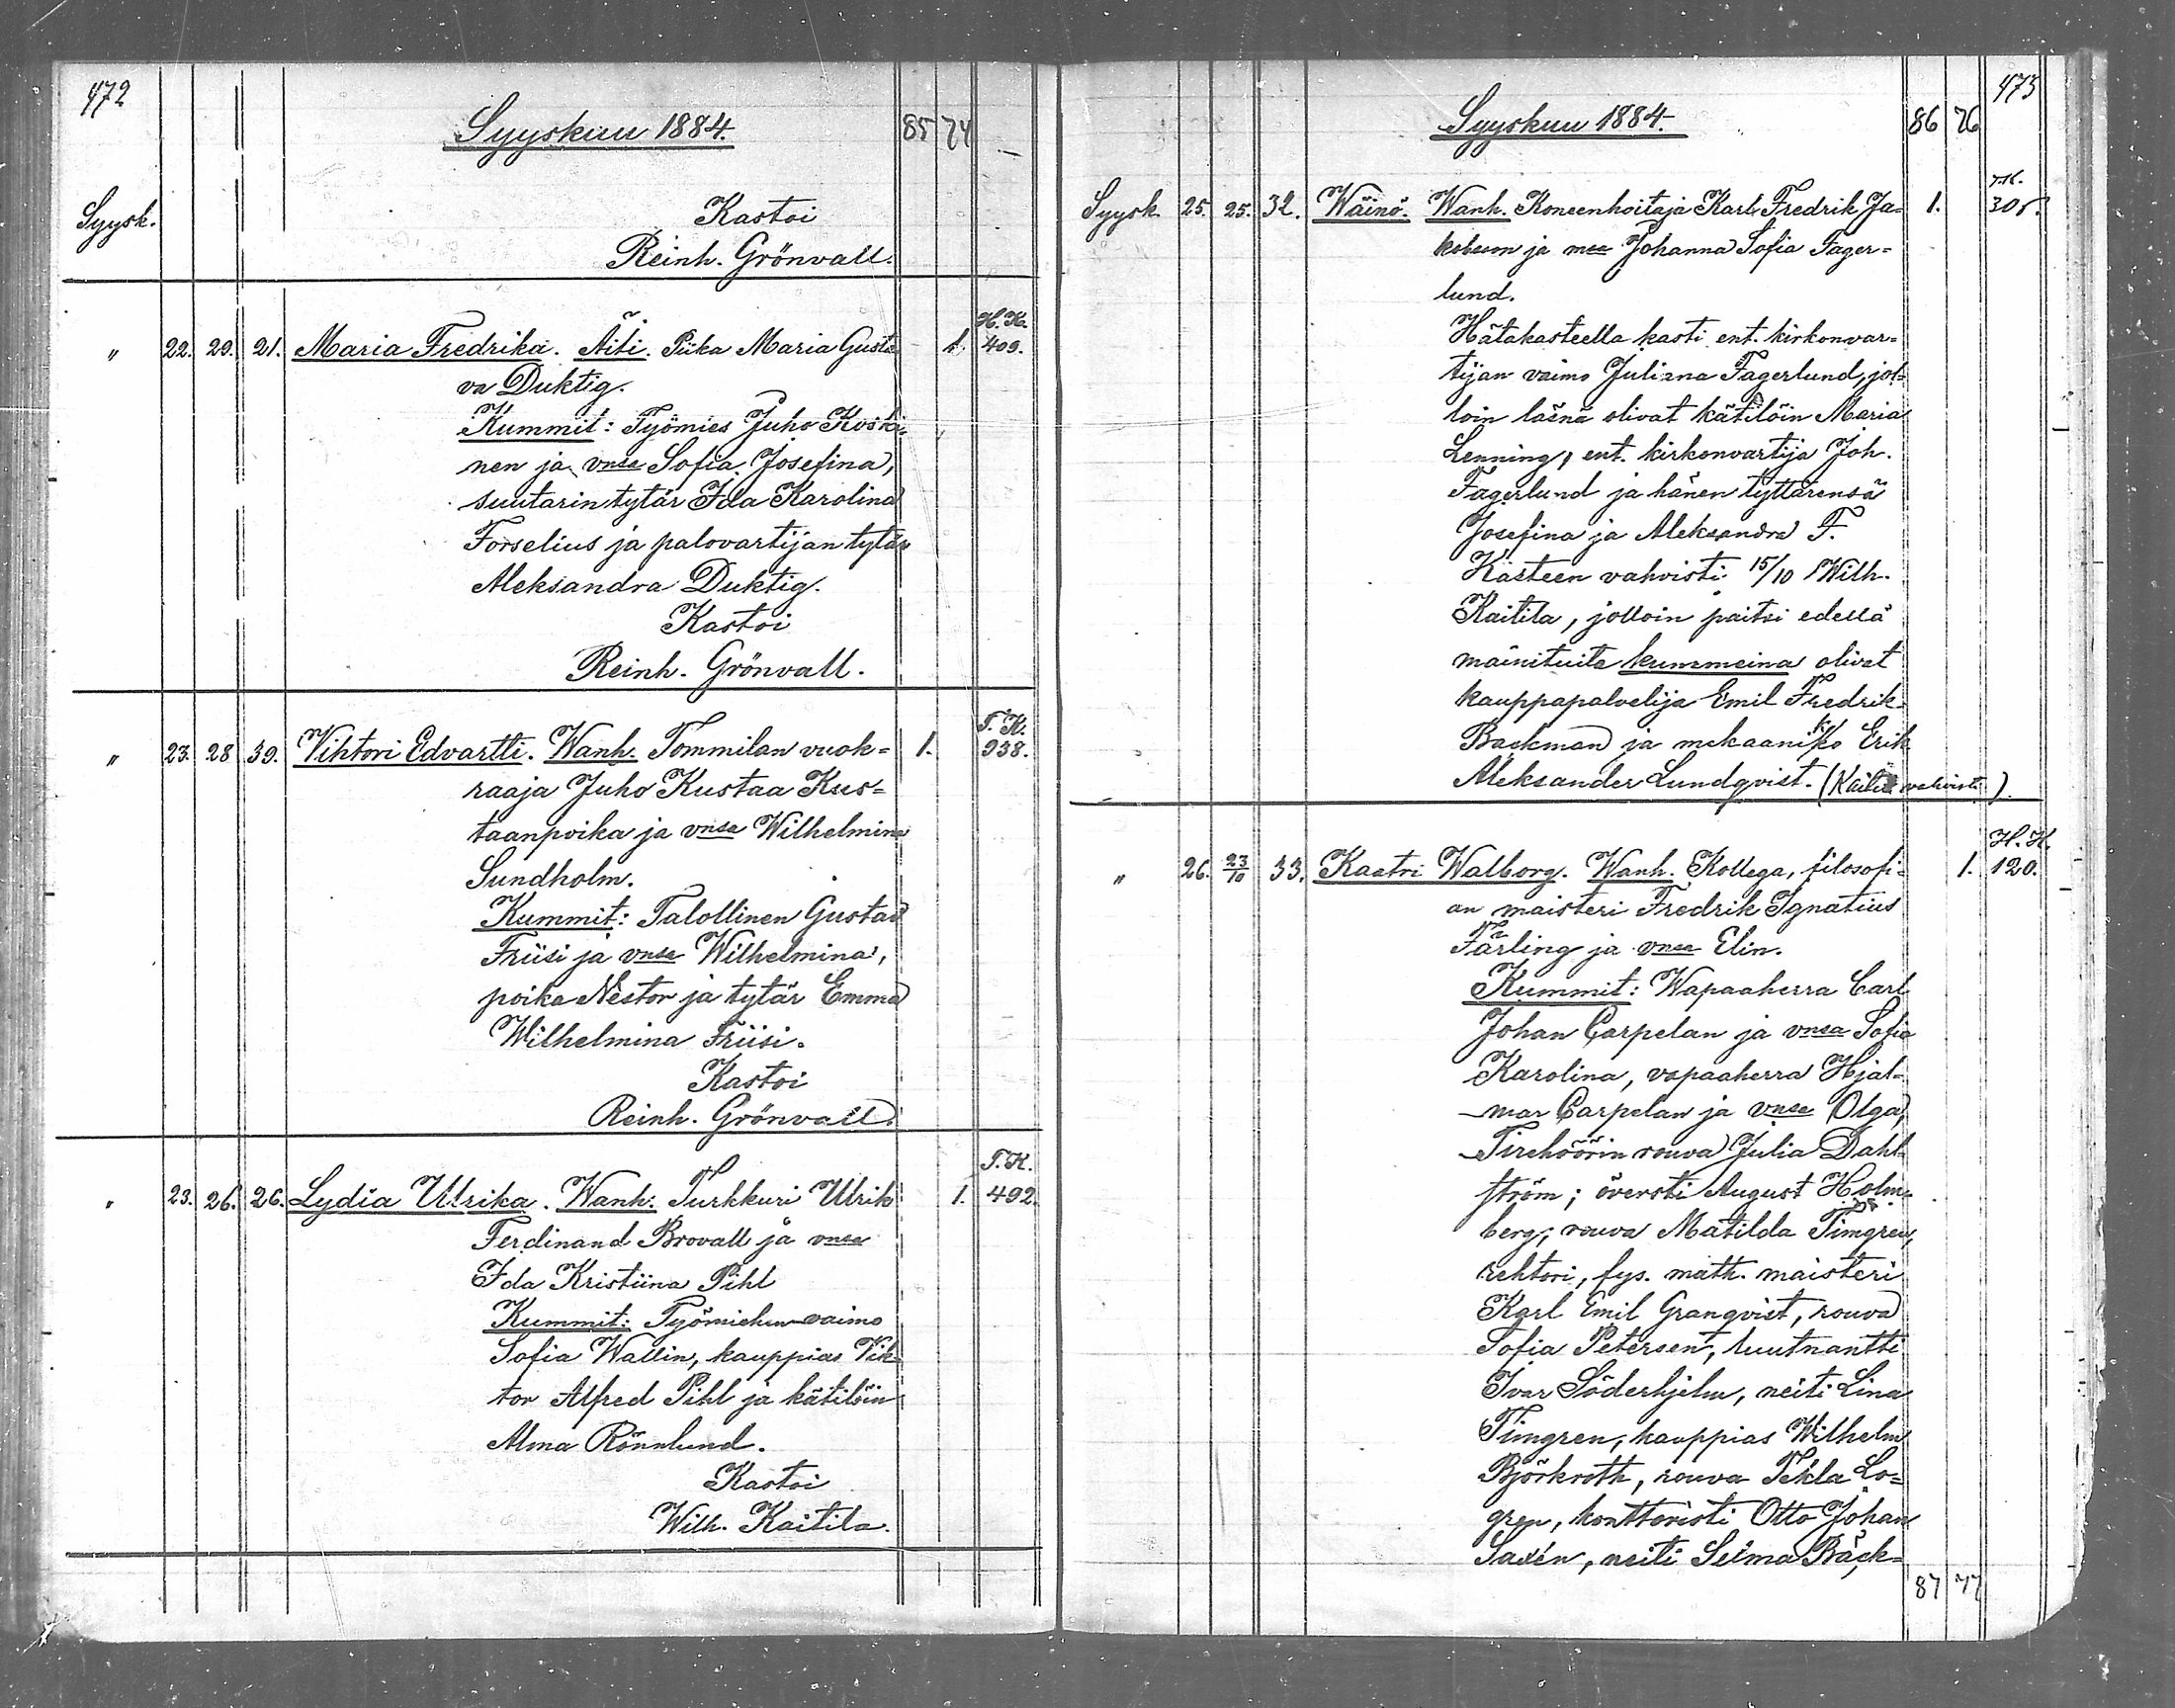 472
Syyskuu 1884.
85 74
Syysk.
Kastoi
Reinh. Grönvall.
H. K.
" 22. 29. 21. Maria Fredrika. Äiti. Piika Maria Gusta 1. 409.
va Duktig.
Kummit: Työmies Juho Koski-
nen ja vnsa Sofia Josefina,
suutarin tytär Ida Karolina
Forselius ja palovartijan tytär
Aleksandra Duktig.
Kastoi
Reinh. Grönvall.
T. K.
" 23. 28 39. Vihtori Edvartti. Wanh. Tommilan vuok= 1. 938.
raaja Juho Kustaa Kus=
taanpoika ja vnsa Wilhelmina
Sundholm.
Kummit: Talollinen Gustav
Friisi ja vnsa Wilhelmina,
poika Nestor ja tytär Emma
Wilhelmina Friisi.
Kastoi
Reinh. Grönvall.
T. K.
" 23. 26. 26. Lydia Ulrika. Wanh. Turkkuri Ulrik 1. 492.
Ferdinand Brovall ja vnsa
Ida Kristiina Pihl
Kummit: Työmiehen vaimo
Sofia Wallin, kauppias Vik-
tor Alfred Pihl ja kätilöin
Alma Rönnlund.
Kastoi
Wilh. Kaitila.
473
Syyskuu 1884.
86 76
Syysk. 25. 25. 32. Wäinö. Wanh. Koneenhoitaja Karl Fredrik Ja= 1.
kobsson ja Johanna Sofia Fager=
lund.
Hätäkasteella kasti ent. kirkonvar=
tijan vaimo Juliana Fagerlund, jol=
loin läsnä olivat kätilöin Maria
Lenning, ent. kirkonvartija Joh.
Fagerlund ja hänen tyttärensä
Josefina ja Aleksandra F.
Kasteen vahvisti 15/10 Wilh.
Kaitila, jolloin paitsi edellä
mainituita kummeina olivat
kauppapalvelija Emil Fredrik
Backman ja mekaanikko Erik
Aleksander Lundqvist. (Kaitila vahvisti.)
H. K.
" 26. 23/10 33. Kaatri Walborg. Wanh. Kollega, filosofi= 1. 120.
an maisteri Fredrik Ignatius
Färling ja vnsa Elin.
Kummit: Wapaaherra Carl
Johan Carpelan ja vnsa Sofia
Karolina, vapaaherra Hjal-
mar Carpelan ja vnsa Olga,
Tirehöörin rouva Julia Dahl-
ström; översti August Holm-
berg; rouva Matilda Timgren,
rehtori, fys. math. maisteri
Karl Emil Granqvist, rouva
Sofia Petersen, luutnantti
Ivar Söderhjelm, neiti Lina
Timgren, kauppias Wilhelm
Björkroth, rouva Tekla Lo=
gren, konttoristi Otto Johan
Saxén, neiti Selma Bäck=
87 77